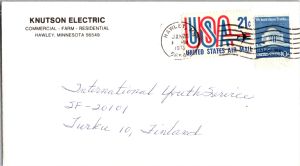 KNUTSON ELECTRIC
COMMERCIAL - FARM - RESIDENTIAL
HAWLEY, MINNESOTA 56549
USA 21c
UNITED STATES AIR MAIL
International Youth Service
SF-20101
Turku 10, Finland